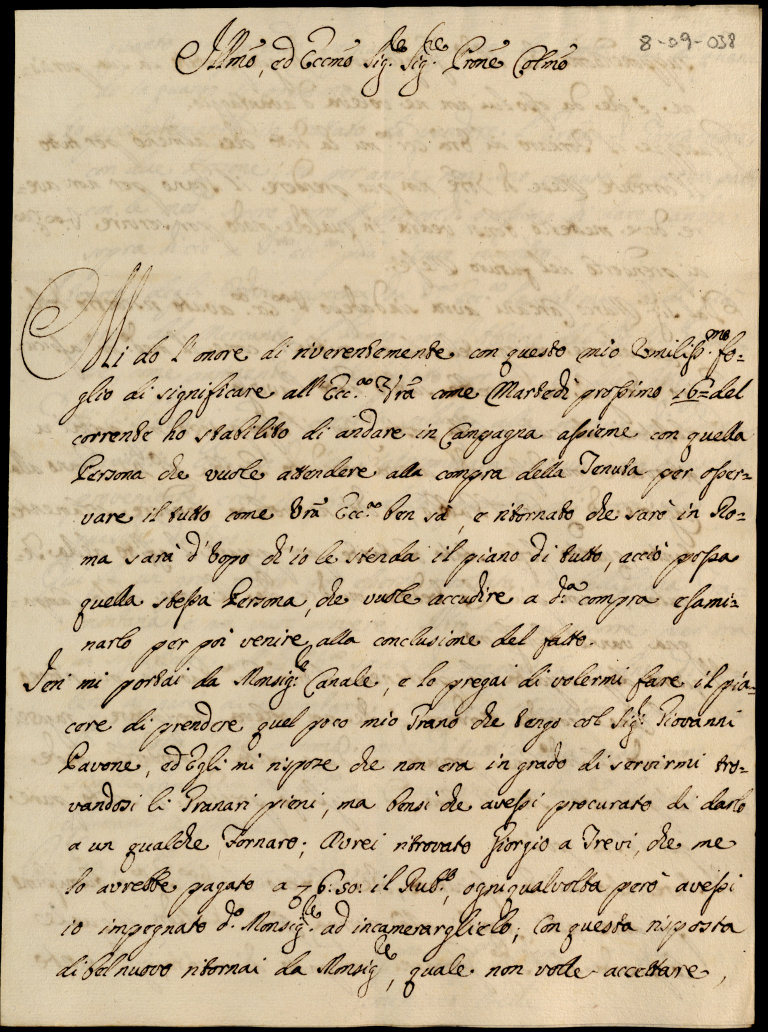 8-09-038
Illmo, ed Eccmo Sig.re Sig.re Prone Colmo
Mi do l'onore di riverentemente con questo mio Umiliss.mo fo=
glio di significare all'Ecc.a Vrã come Martedì prossimo 16= del
corrente ho stabilito di andare in Campagna assieme con quella
Persona che vuole attendere alla compra della Tenuta per osser=
vare il tutto come Vrã Ecc.a ben sà, e ritornato che sarò in Ro=
ma sarà d'Uopo ch'io le stenda il piano di tutto, acciò possa
quella stessa Persona, che vuole accudire a d.a compra esami=
narlo per poi venire alla conclusione del fatto.
Ieri mi portai da Monsig.e Canale, e lo pregai di volermi fare il pia=
cere di prendere quel poco mio Grano che tengo col Sig.r Giovanni
Pavone, ed Egli mi rispose che non era in grado di servirmi tro=
vandosi li Granari pieni, ma bensì che avessi procurato di darlo
a un qualche Fornaro; Avrei ritrovato Giorgio a Trevi, che me
lo avrebbe pagato a 7 6:50: il Rub.o, ogniqualvolta però avessi
io impegnato d.o Monsig.re ad incamerarglielo; Con questa risposta
di bel nuovo ritornai da Monsig.re, quale non volle accettare,